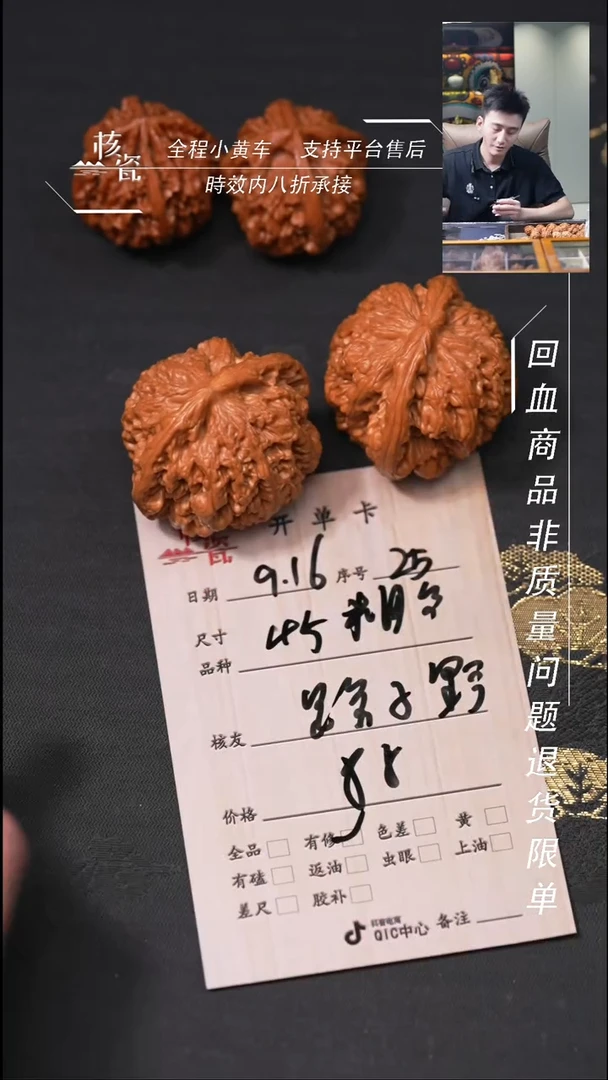 核瓷
全程小黄车 支持平台售后
時效内八折承接
回血商品非质量问题退货限单
瓷
开单卡
日期 9.16 序号 25
尺寸 45
品种
核友
价格
全品 有修 色差 黄
有磕 返油 虫眼 上油
差尺 胶补
抖音电商
QIC中心 备注